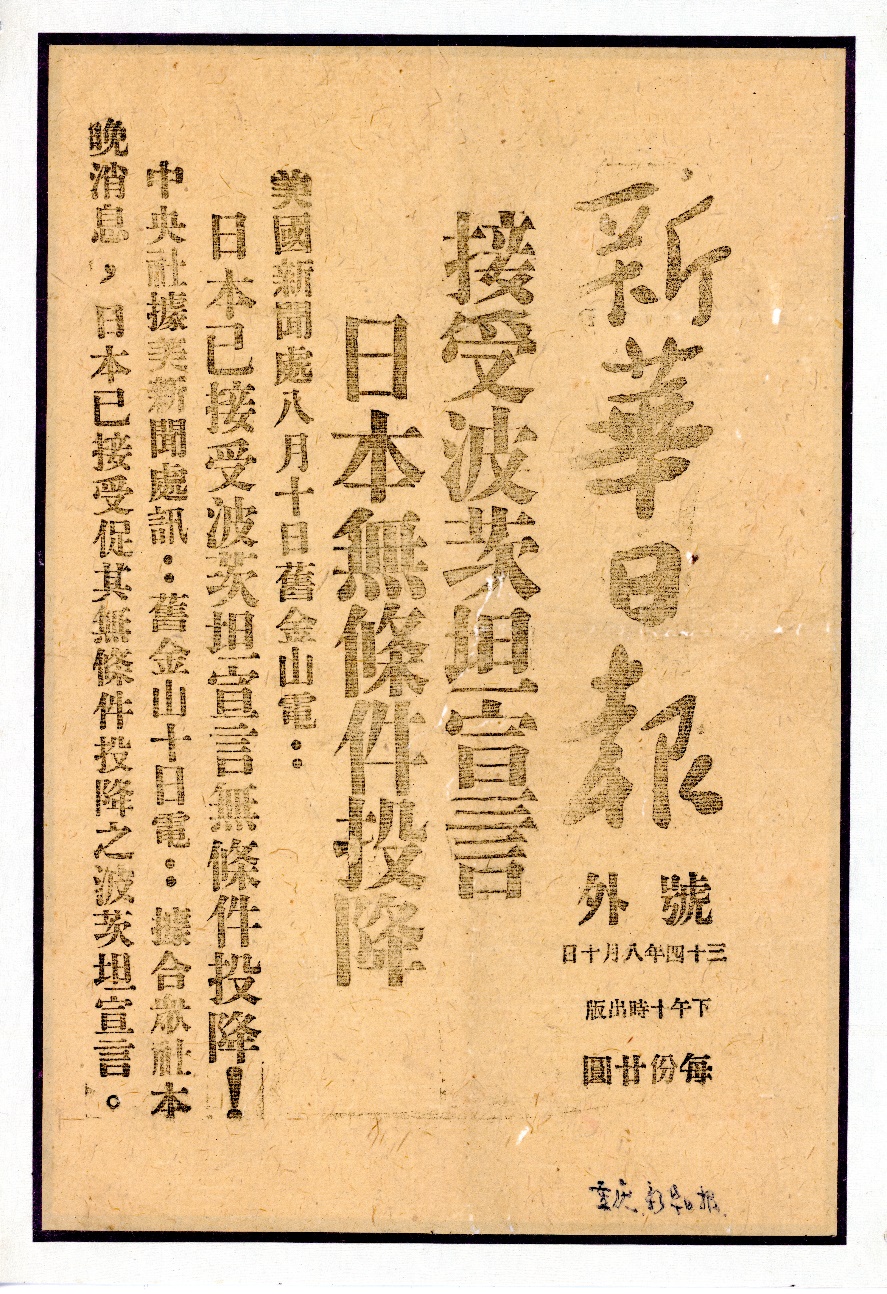 新華日報
號外
三十四年八月十日
下午十時出版
每份廿圓
重庆新华日报
接受波茨坦宣言
日本無條件投降
美國新聞處八月十日舊金山電：
日本已接受波茨坦宣言無條件投降！
中央社據美新聞處訊：舊金山十日電：據合衆社本
晚消息，日本已接受促其無條件投降之波茨坦宣言。